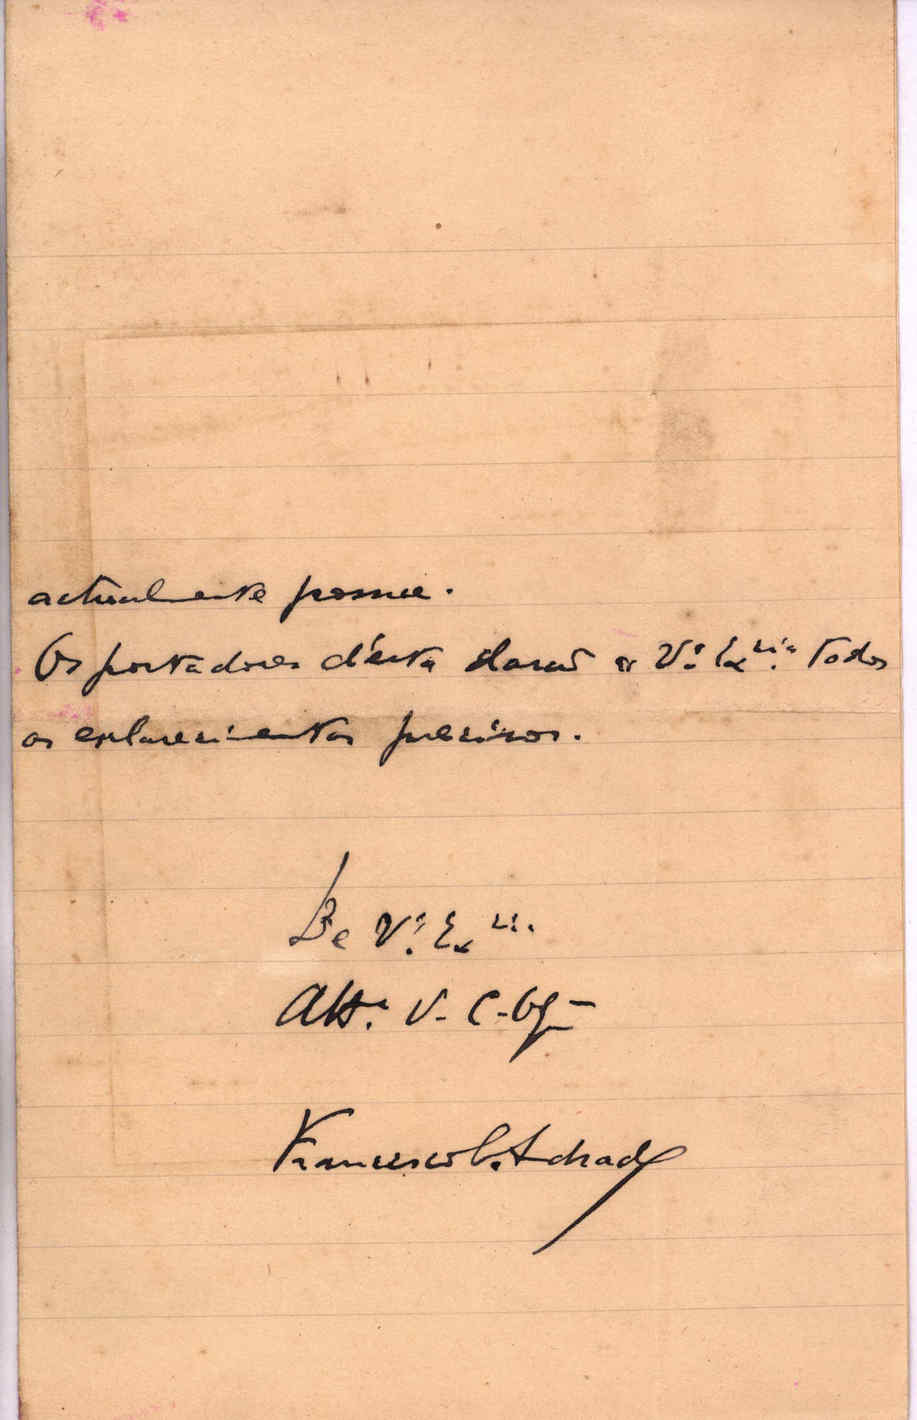 actualmente possue.
Os portadores d'esta darão a V.ª Ex.cia todos
os esclarecimentos precisos.
De V.ª Ex.cia
Att.º V. C. Obg.
Francisco C. Achad